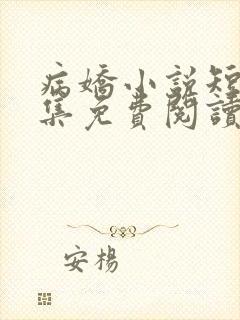 病嬌小說短
集免費閱讀
安楊